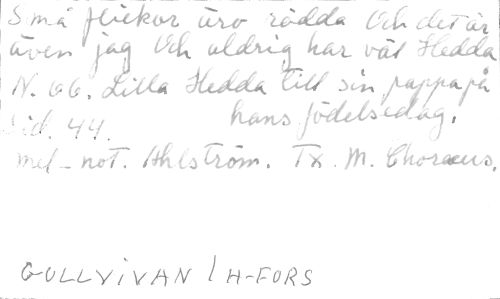 Små flickor äro rädda Och det är
även jag Och aldrig har vät Hedda
N. 66. Lilla Hedda till sin pappa på
sid. 44. hans födelsedag.
mel-not. Ahlström. Tx. M. Choraeus.
GULLVIVAN / H-FORS